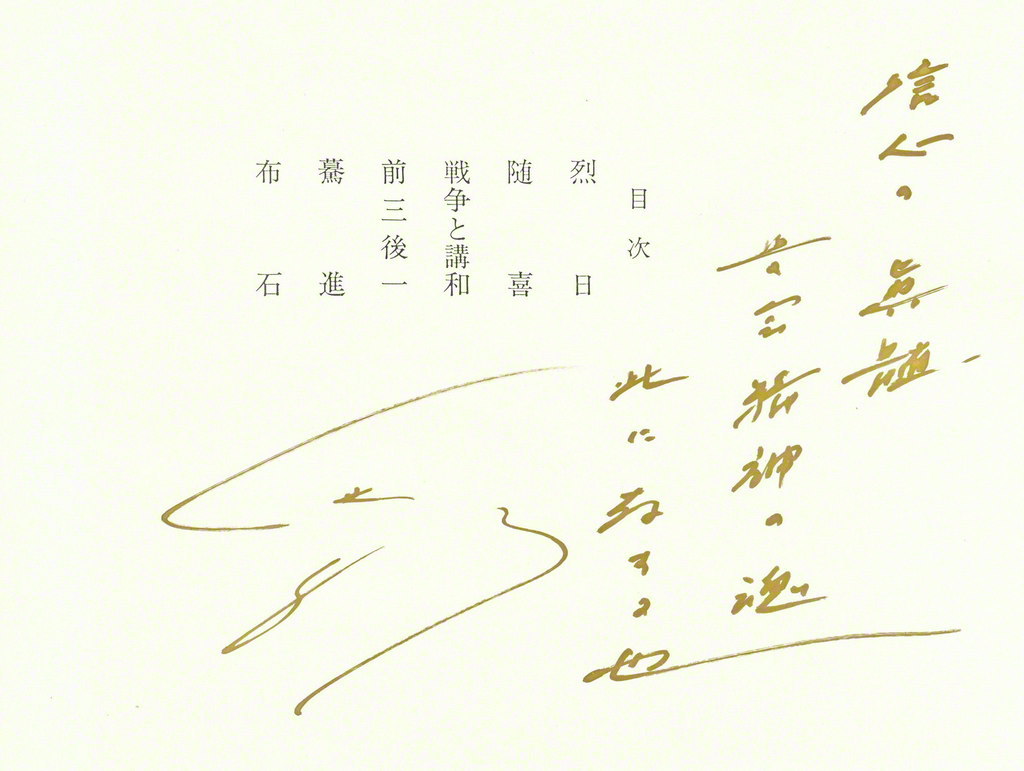 信心の眞髄
学会精神の魂
此に存する也
目次
烈日
随喜
戦争と講和
前三後一
驀進
布石